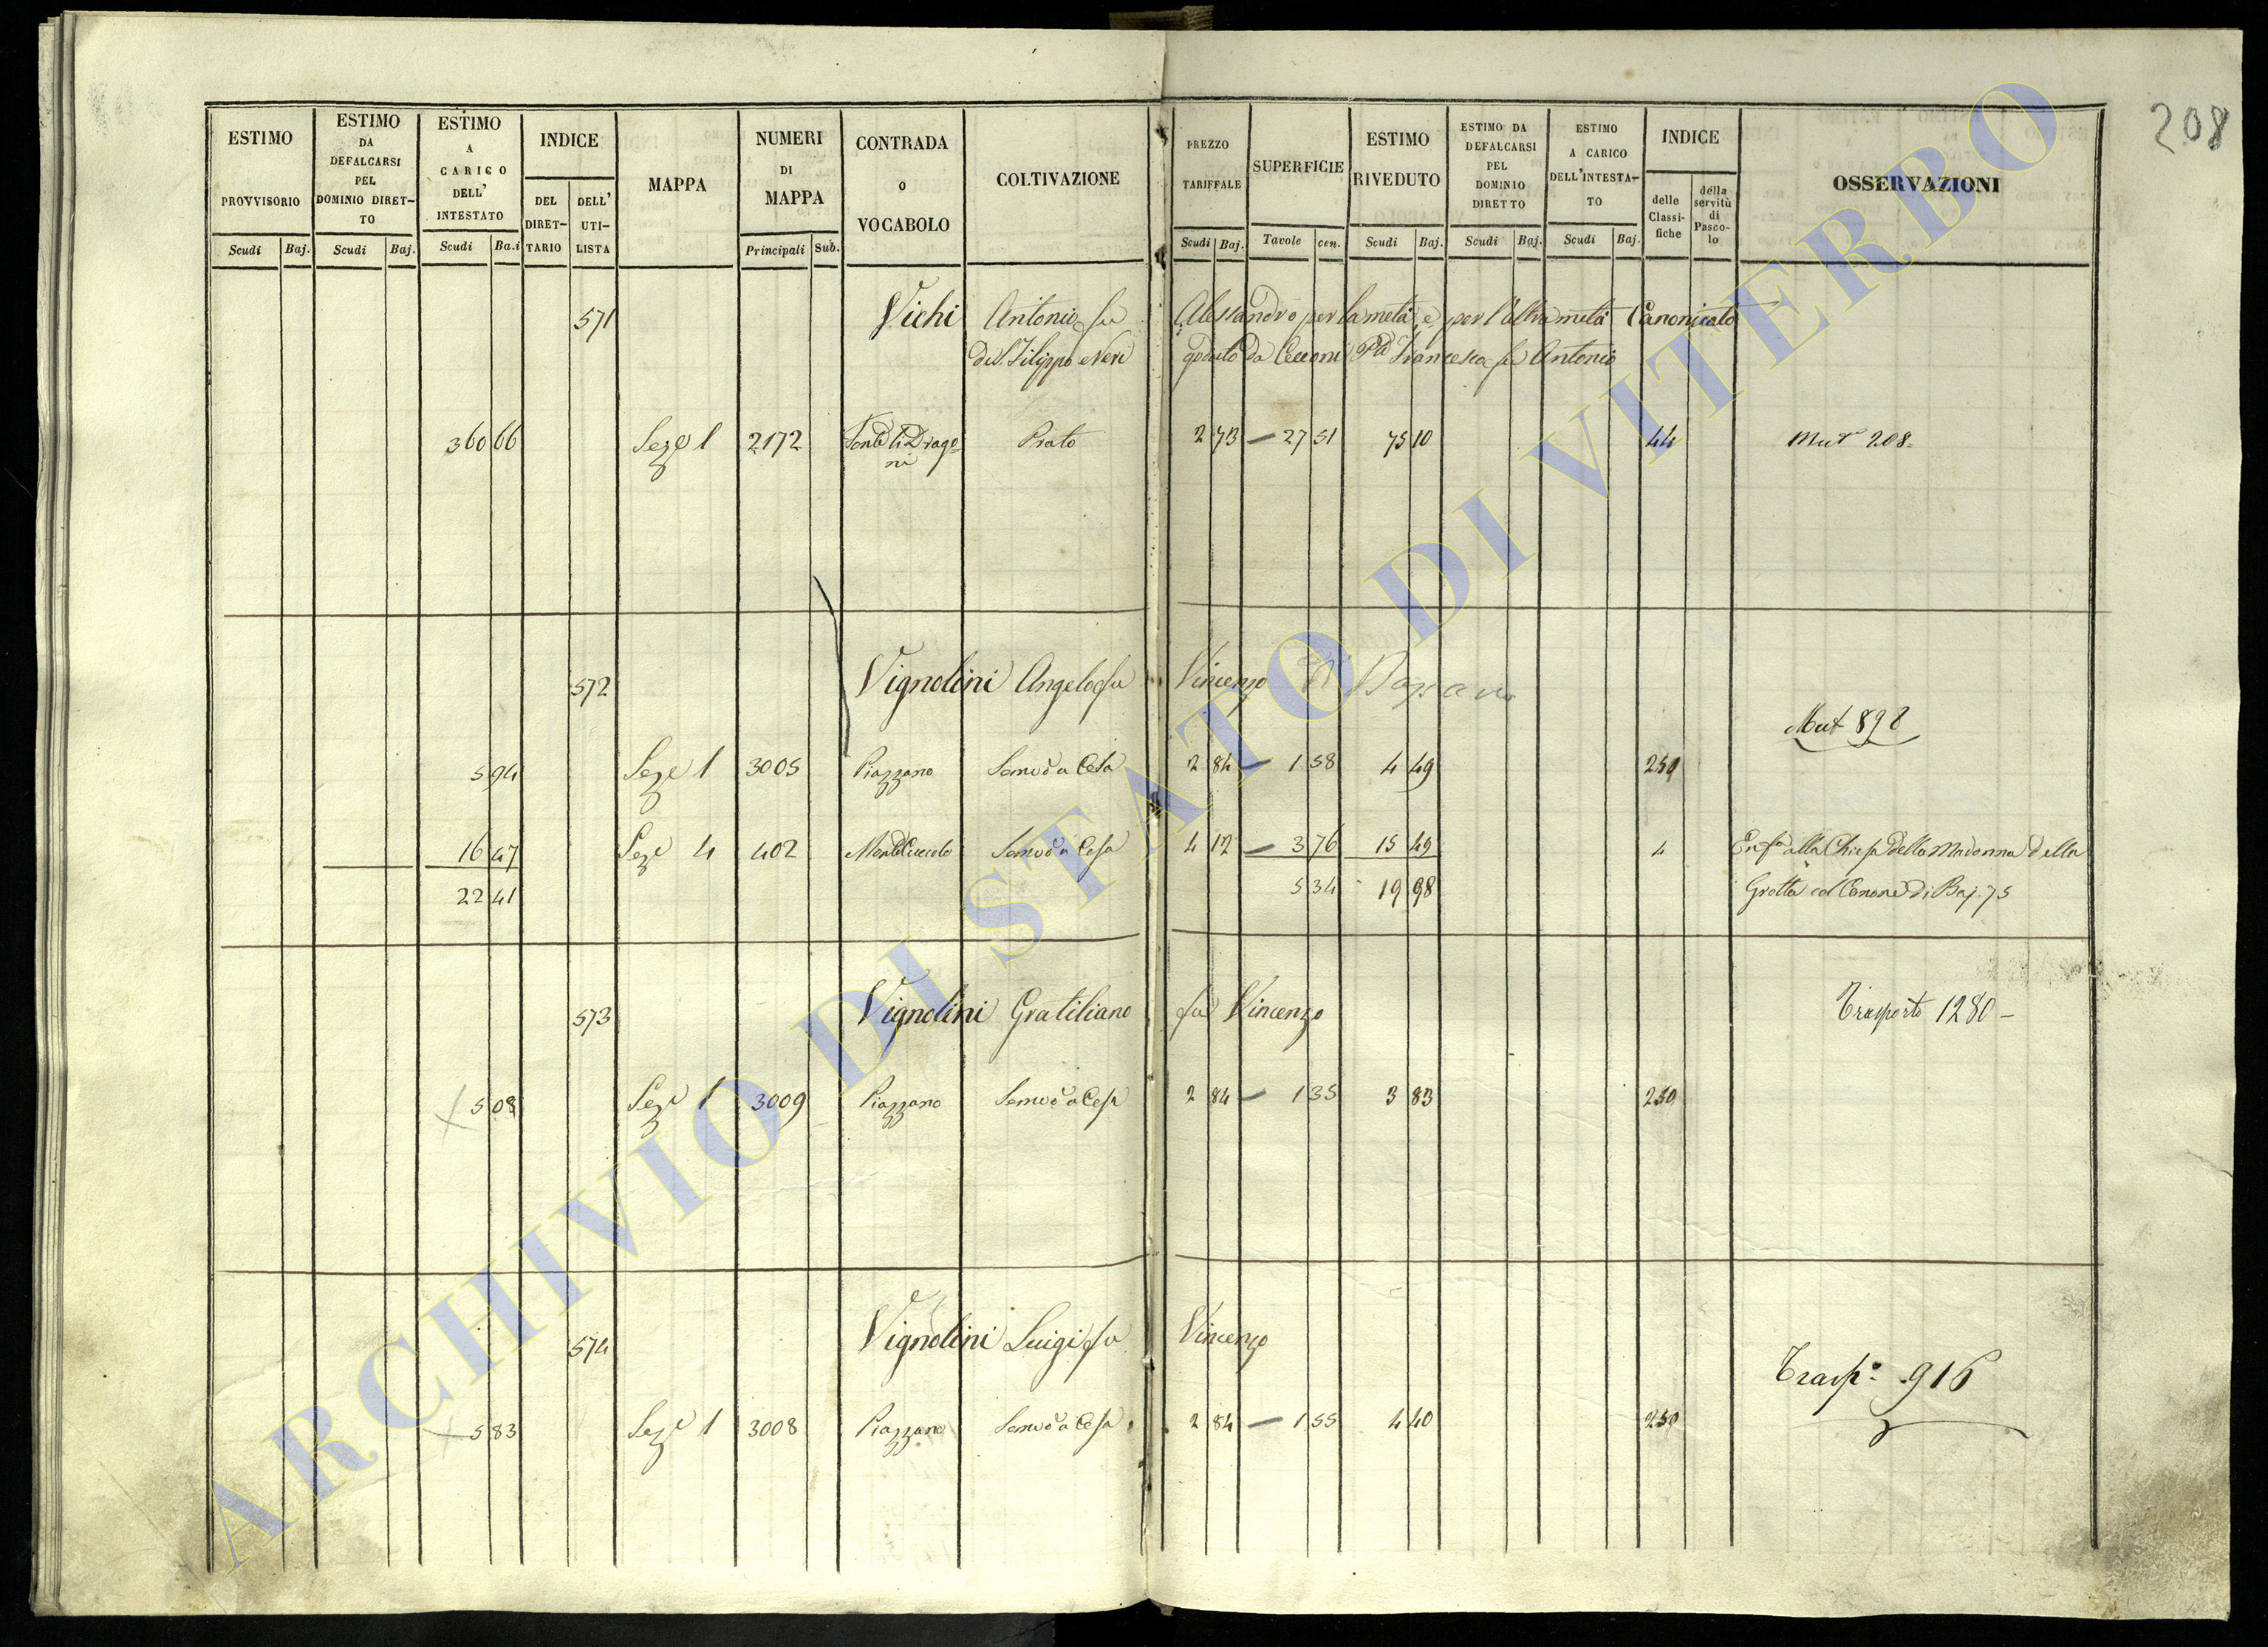 208
ESTIMO PROVVISORIO
ESTIMO DA DEFALCARSI PEL DOMINIO DIRET-TO
ESTIMO A CARICO DELL' INTESTATO
INDICE
DEL DIRET-TARIO
DELL' UTI-LISTA
MAPPA
NUMERI DI MAPPA
CONTRADA O VOCABOLO
COLTIVAZIONE
PREZZO TARIFFALE
SUPERFICIE
ESTIMO RIVEDUTO
ESTIMO DA DEFALCARSI PEL DOMINIO DIRETTO
ESTIMO A CARICO DELL'INTESTA-TO
INDICE
delle Classi-fiche
della servitù di Pasco-lo
OSSERVAZIONI
Scudi Baj. Scudi Baj. Scudi Ba.i Principali Sub. Scudi Baj. Tavole cen. Scudi Baj. Scudi Baj. Scudi Baj.
571 Vichi Antonio fu Alessandro per la metà, e per l'altra metà Canonicato
di S. Filippo Neri goduto da Cecconi Francesca fu Antonio
360 66 Seze 1 2172 Prato 2 73 — 27 51 75 10 44 Mut 208
572 Vignolini Angelo fu Vincenzo di Bassano
Mut 898
5 94 Seze 1 3005 Piazzano Semvo a Cesa 2 84 — 1 58 4 49 250
16 47 Seze 4 402 Semvo a Cesa 4 12 — 3 76 15 49 4 Enfa alla Chiesa della Madonna della
22 41 5 34 19 98 Grotta col Canone di Baj. 75
573 Vignolini Gratiliano fu Vincenzo Trasporto 1280 —
5 08 Seze 1 3009 Piazzano Semvo a Cesa 2 84 — 1 35 3 83 250
574 Vignolini Luigi fu Vincenzo
Traspo 916
5 83 Seze 1 3008 Piazzano Semvo a Cesa 2 84 — 1 55 4 40 250
ARCHIVIO DI STATO DI VITERBO